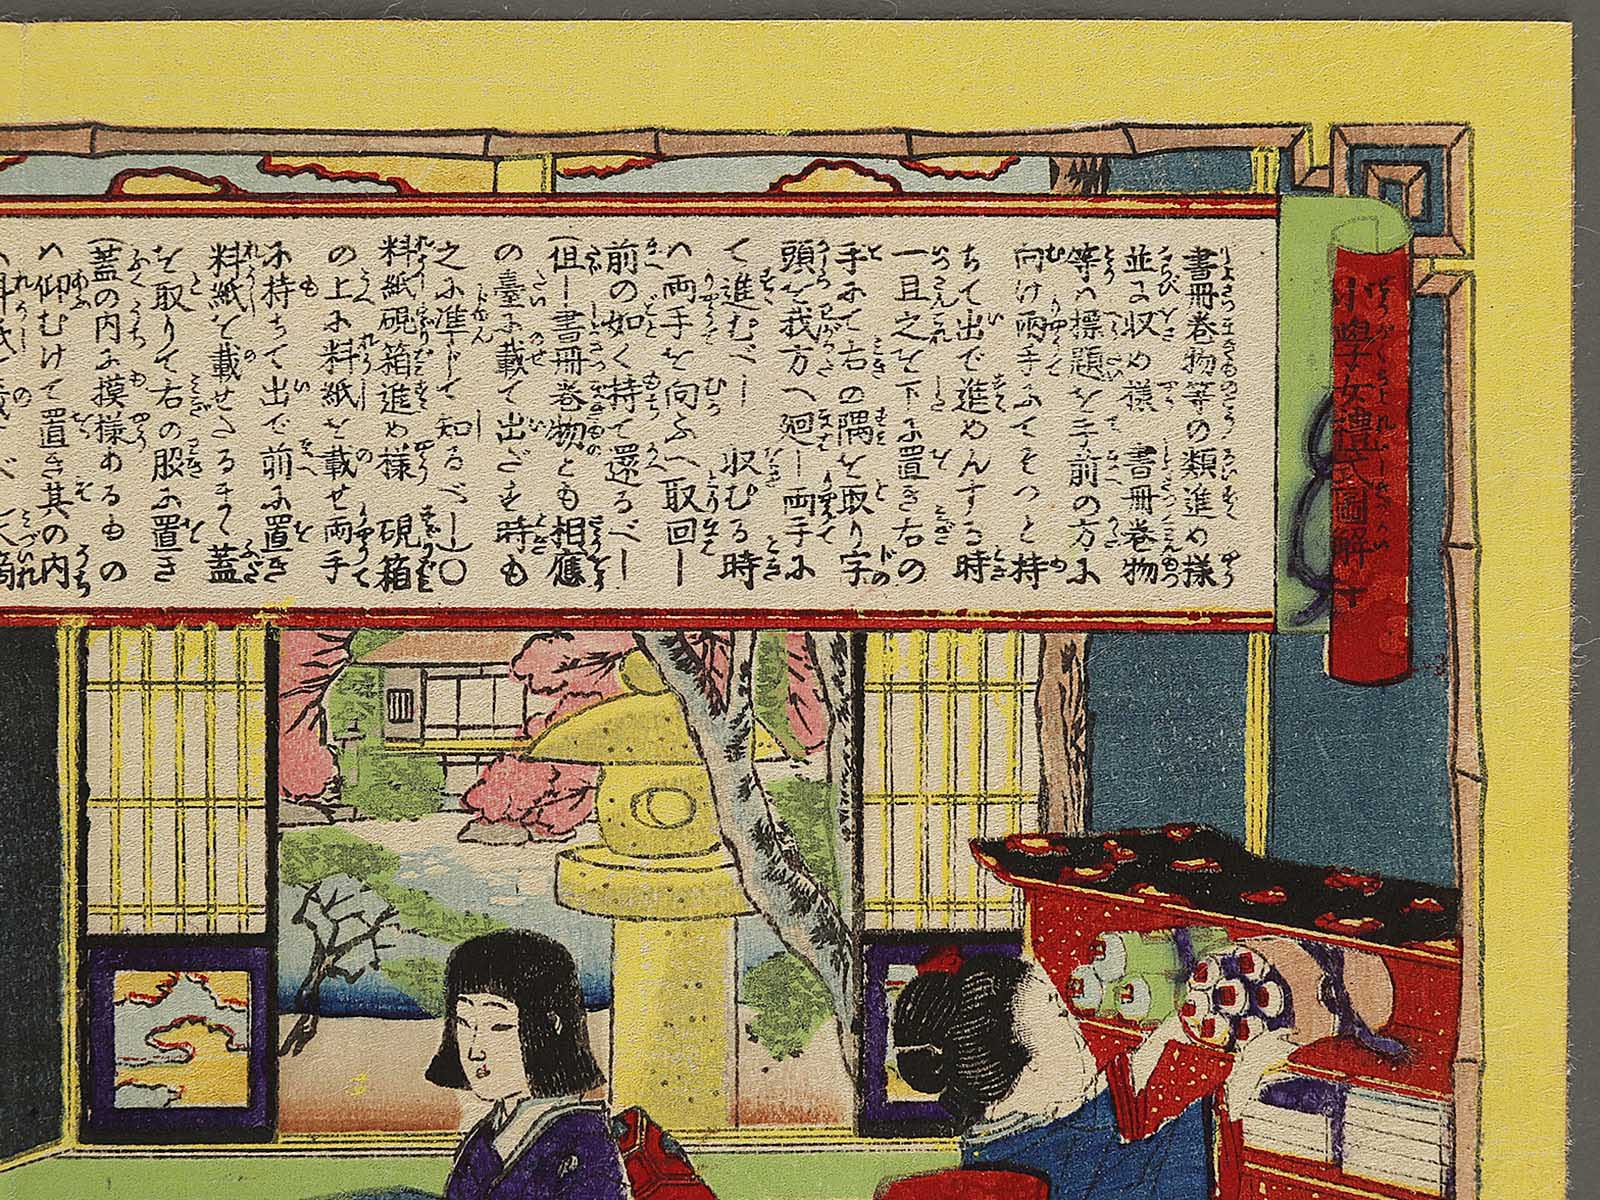 小學女禮式圖解 十
書冊巻物等の類進め様
並に収め様 書冊巻物
等ハ標題を手前の方に
向け両手にてそつと持
ちて出で進めんする時
一旦之を下に置き右の
手にて右の隅を取り字
頭を我方へ廻し両手に
て進むべし 収むる時
ハ両手を向ふへ取回し
前の如く持て還るべし
(但し書冊巻物とも相應
の臺に載て出だす時も
之に準じて知るべし)〇
料紙硯箱進め様 硯箱
の上に料紙を載せ両手
に持ちて出で前に置き
料紙を載せたるまゝ蓋
を取りて右の脇に置き
(蓋の内に摸様あるもの
ハ仰むけて置き其の内